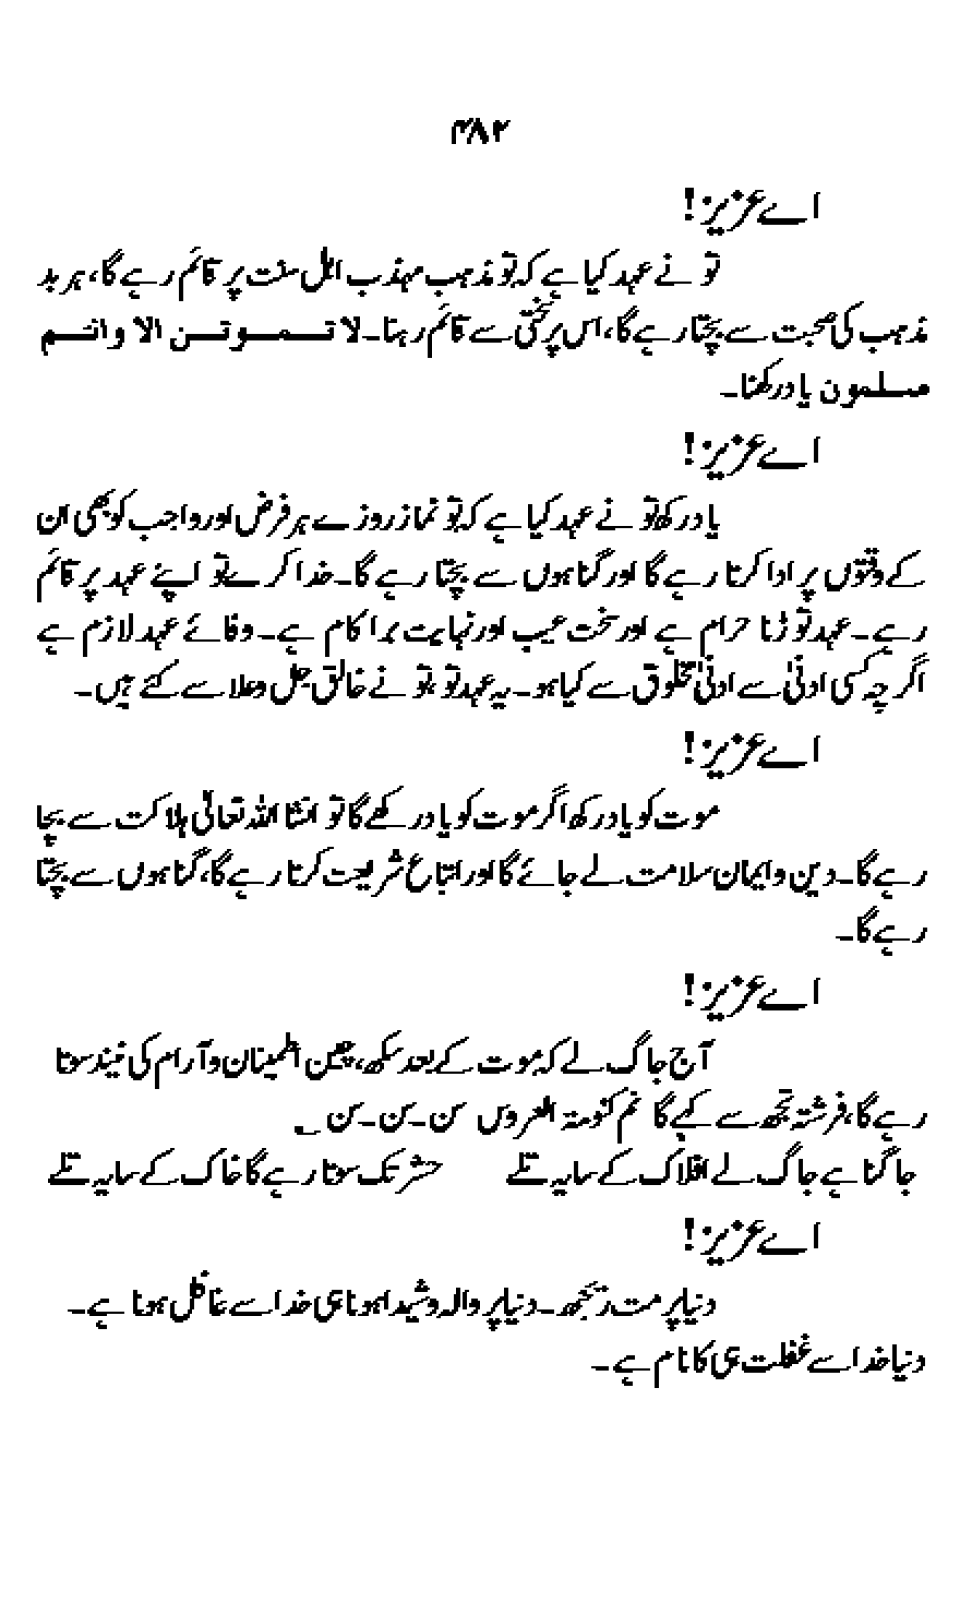 ۴۸۲
اے عزیز!
تو نے عہد کیا ہے کہ تو مذہب مہذب اہل سنت پر قائم رہے گا، ہر بد
مذہب کی صحبت سے بچتا رہے گا، اس پر سختی سے قائم رہنا۔ لا تمـوتـن الا وانتـم
مسلمون یاد رکھنا۔
اے عزیز!
یاد رکھ تو نے عہد کیا ہے کہ تو نماز روزے ہر فرض اور واجب کو بھی ان
کے وقتوں پر ادا کرتا رہے گا اور گناہوں سے بچتا رہے گا۔ خدا کرے تو اپنے عہد پر قائم
رہے۔ عہد توڑنا حرام ہے اور سخت عیب اور نہایت برا کام ہے۔ وفائے عہد لازم ہے
اگرچہ کسی ادنیٰ سے ادنیٰ مخلوق سے کیا ہو۔ یہ عہد تو، تو نے خالق جل وعلا سے کئے ہیں۔
اے عزیز!
موت کو یاد رکھ اگر موت کو یاد رکھے گا تو انشا اللہ تعالیٰ ہلاکت سے بچا
رہے گا۔ دین و ایمان سلامت لے جائے گا اور اتباع شریعت کرتا رہے گا، گناہوں سے بچتا
رہے گا۔
اے عزیز!
آج جاگ لے کہ موت کے بعد سکھ، چین اطمینان و آرام کی نیند سوتا
رہے گا، فرشتہ تجھ سے کہے گا نم کنومۃ العروس سن۔سن۔سن ؂
جاگنا ہے جاگ لے افلاک کے سایہ تلے حشر تک سوتا رہے گا خاک کے سایہ تلے
اے عزیز!
دنیا پر مت ریجھ۔ دنیا پر والہ و شیدا ہونا ہی خدا سے غافل ہونا ہے۔
دنیا خدا سے غفلت ہی کا نام ہے۔